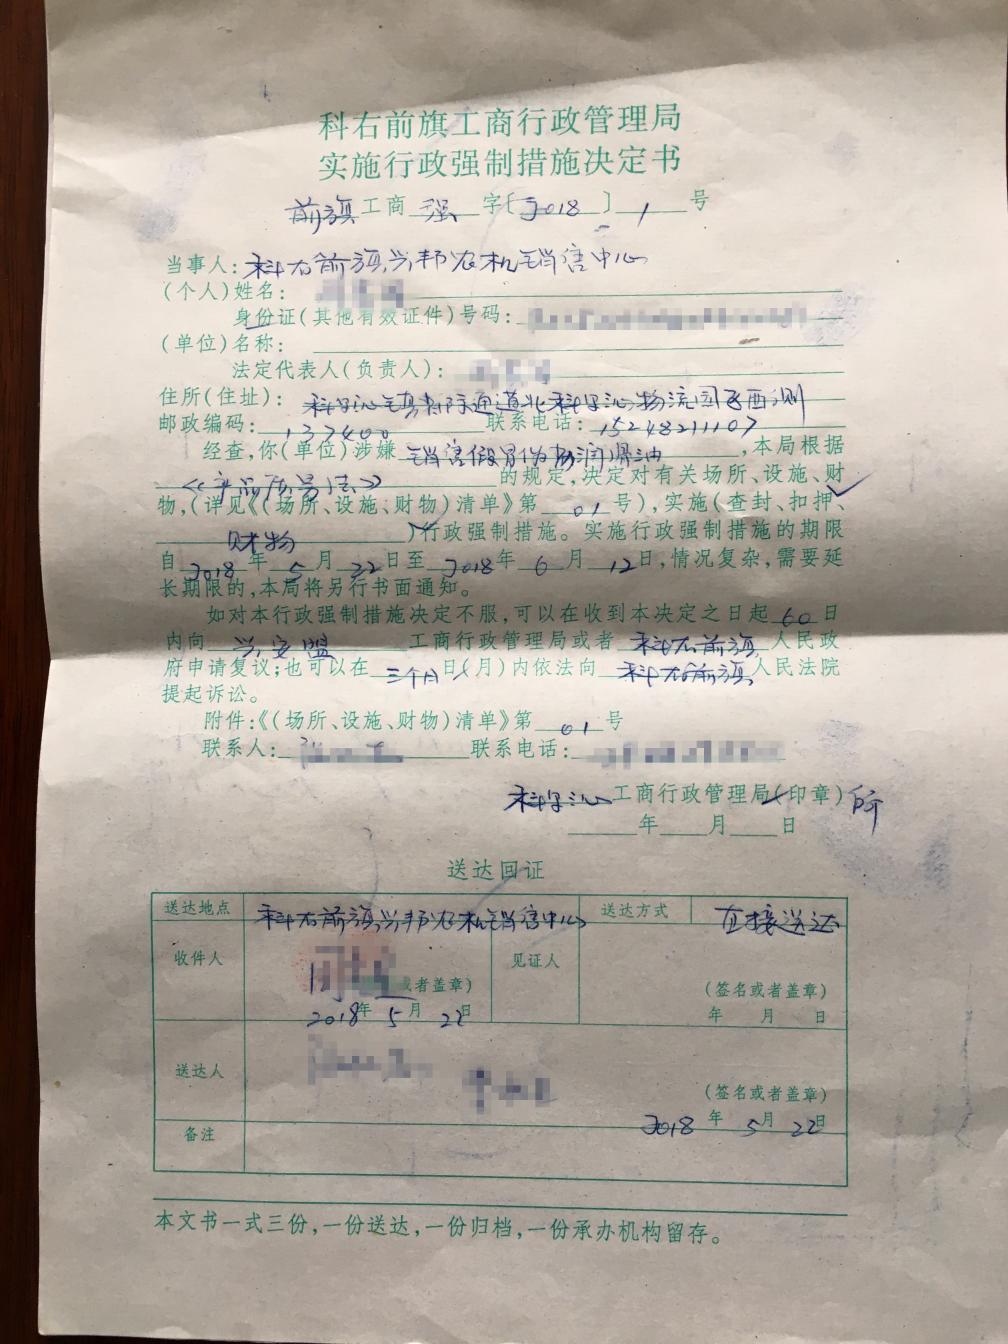 科右前旗工商行政管理局
实施行政强制措施决定书
前旗工商 强 字〔2018〕 1 号
当事人:科右前旗兴邦农机销售中心
(个人)姓名:
身份证(其他有效证件)号码:
(单位)名称:
法定代表人(负责人):
住所(住址):科尔沁镇 通道北科尔沁物流园区西侧
邮政编码:137400 联系电话:15248211107
经查,你(单位)涉嫌 销售假冒伪劣润滑油,本局根据
《产品质量法》的规定,决定对有关场所、设施、财
物,(详见《(场所、设施、财物)清单》第 01 号),实施(查封、扣押✓
财物)行政强制措施。实施行政强制措施的期限
自 2018 年 5 月 22 日至 2018 年 6 月 12 日,情况复杂,需要延
长期限的,本局将另行书面通知。
如对本行政强制措施决定不服,可以在收到本决定之日起 60 日
内向 兴安盟 工商行政管理局或者 科右前旗 人民政
府申请复议;也可以在 三个月 日(月)内依法向 科右前旗 人民法院
提起诉讼。
附件:《(场所、设施、财物)清单》第 01 号
联系人: 联系电话:
科尔沁工商行政管理局(印章)所
年 月 日
送达回证
送达地点 科右前旗兴邦农机销售中心 送达方式 直接送达
收件人 或者盖章) 2018年 5 月 22日
见证人 (签名或者盖章) 年 月 日
送达人 (签名或者盖章)
2018 年 5月 22日
备注
本文书一式三份,一份送达,一份归档,一份承办机构留存。